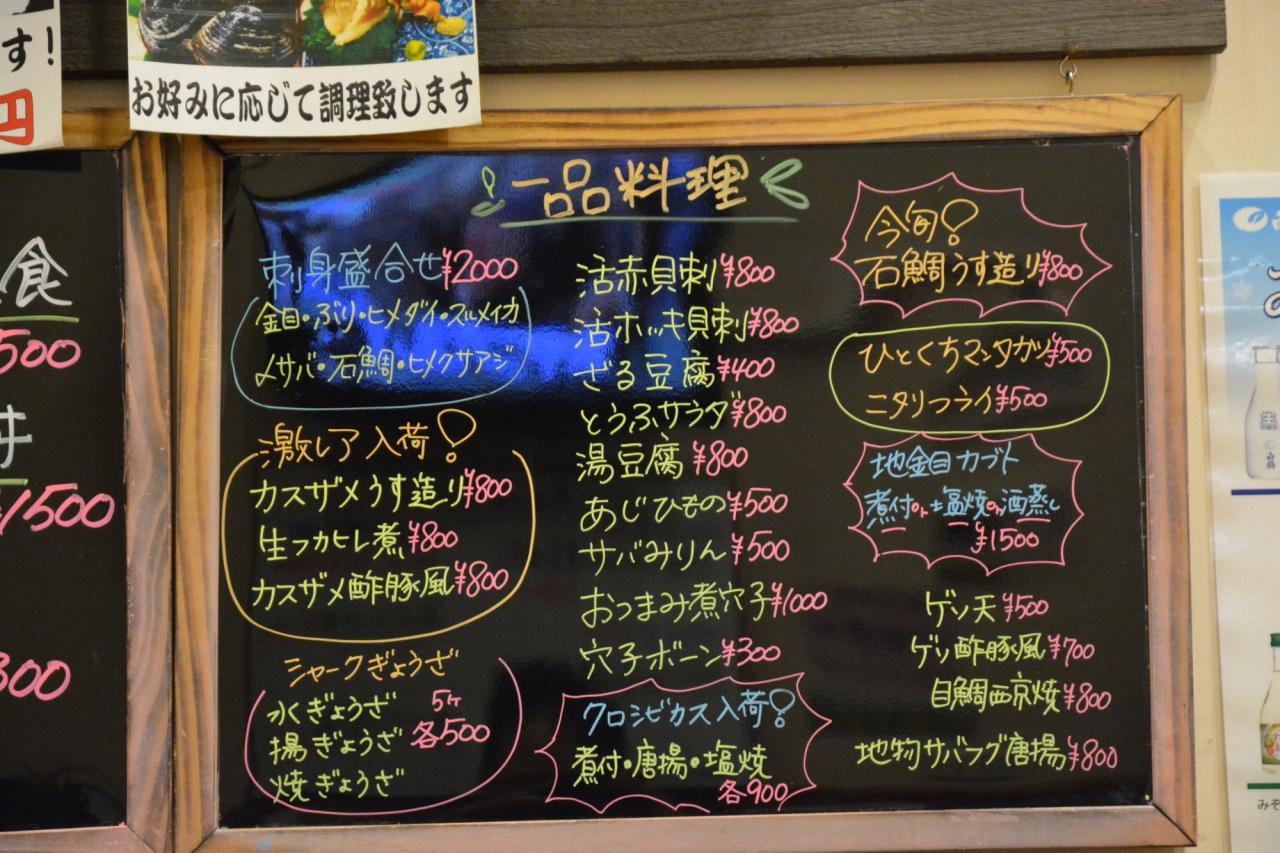 す!
円
お好みに応じて調理致します
食
500
丼
¥1500
300
一品料理
刺身盛合せ¥2000
金目・ぶり・ヒメダイ・スルメイカ
〆サバ・石鯛・ヒメクサアジ
激レア入荷!
カスザメうす造り¥800
生フカヒレ煮¥800
カスザメ酢豚風¥800
シャークぎょうざ
水ぎょうざ
揚ぎょうざ
焼ぎょうざ
5ヶ
各500
活赤貝刺¥800
活ホッキ貝刺¥800
ざる豆腐¥400
とうふサラダ¥800
湯豆腐¥800
あじひもの¥500
サバみりん¥500
おつまみ煮穴子¥1000
穴子ボーン¥300
クロシビカス入荷!
煮付・唐揚・塩焼
各900
今旬!
石鯛うす造り¥800
ひとくちマンタカツ¥500
ニタリフライ¥500
地金目カブト
煮付or塩焼or酒蒸し
¥1500
ゲソ天¥500
ゲソ酢豚風¥700
目鯛西京焼¥800
地物サバフグ唐揚¥800
生
白鶴
みぞ